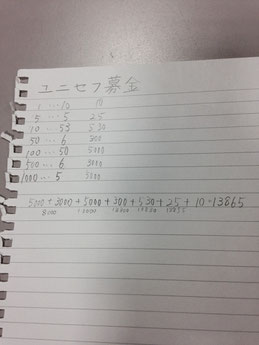 ユニセフ募金
1 … 10 10
5 … 5 25
10 … 53 530
50 … 6 300
100 … 50 5000
500 … 6 3000
1000 … 5 5000
5000 + 3000 + 5000 + 300 + 530 + 25 + 10 = 13865
8000 13000 13300 13830 13855